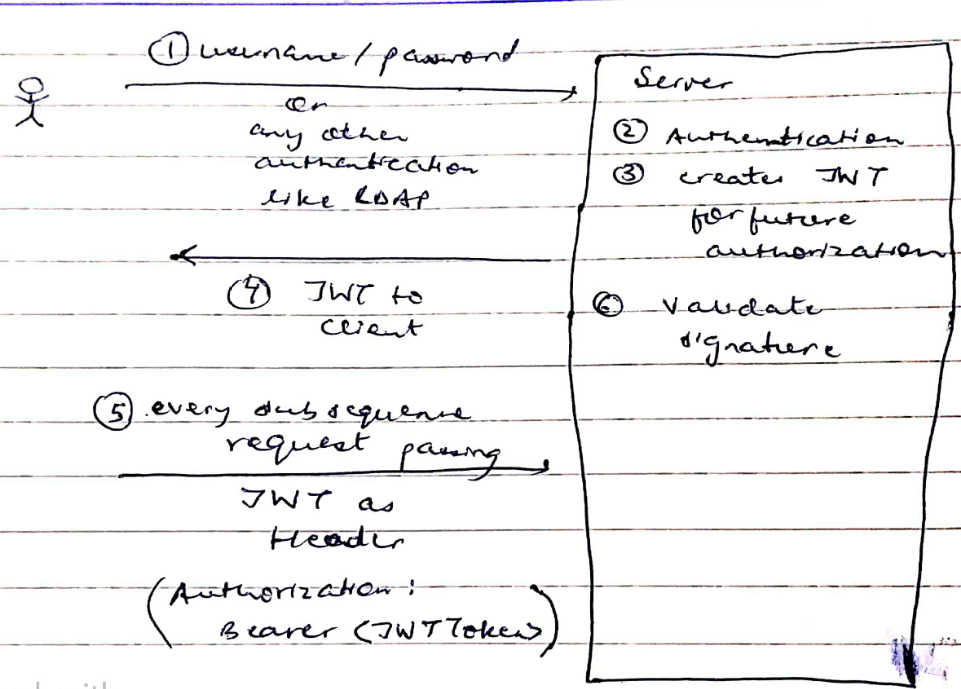 ① username / password
or
any other
authentication
like LDAP
Server
② Authentication
③ creates JWT
for future
authorization
④ JWT to
client
⑤ every subsequence
request passing
JWT as
Header
(Authorization:
Bearer <JWT Token>)
⑥ validate
signature